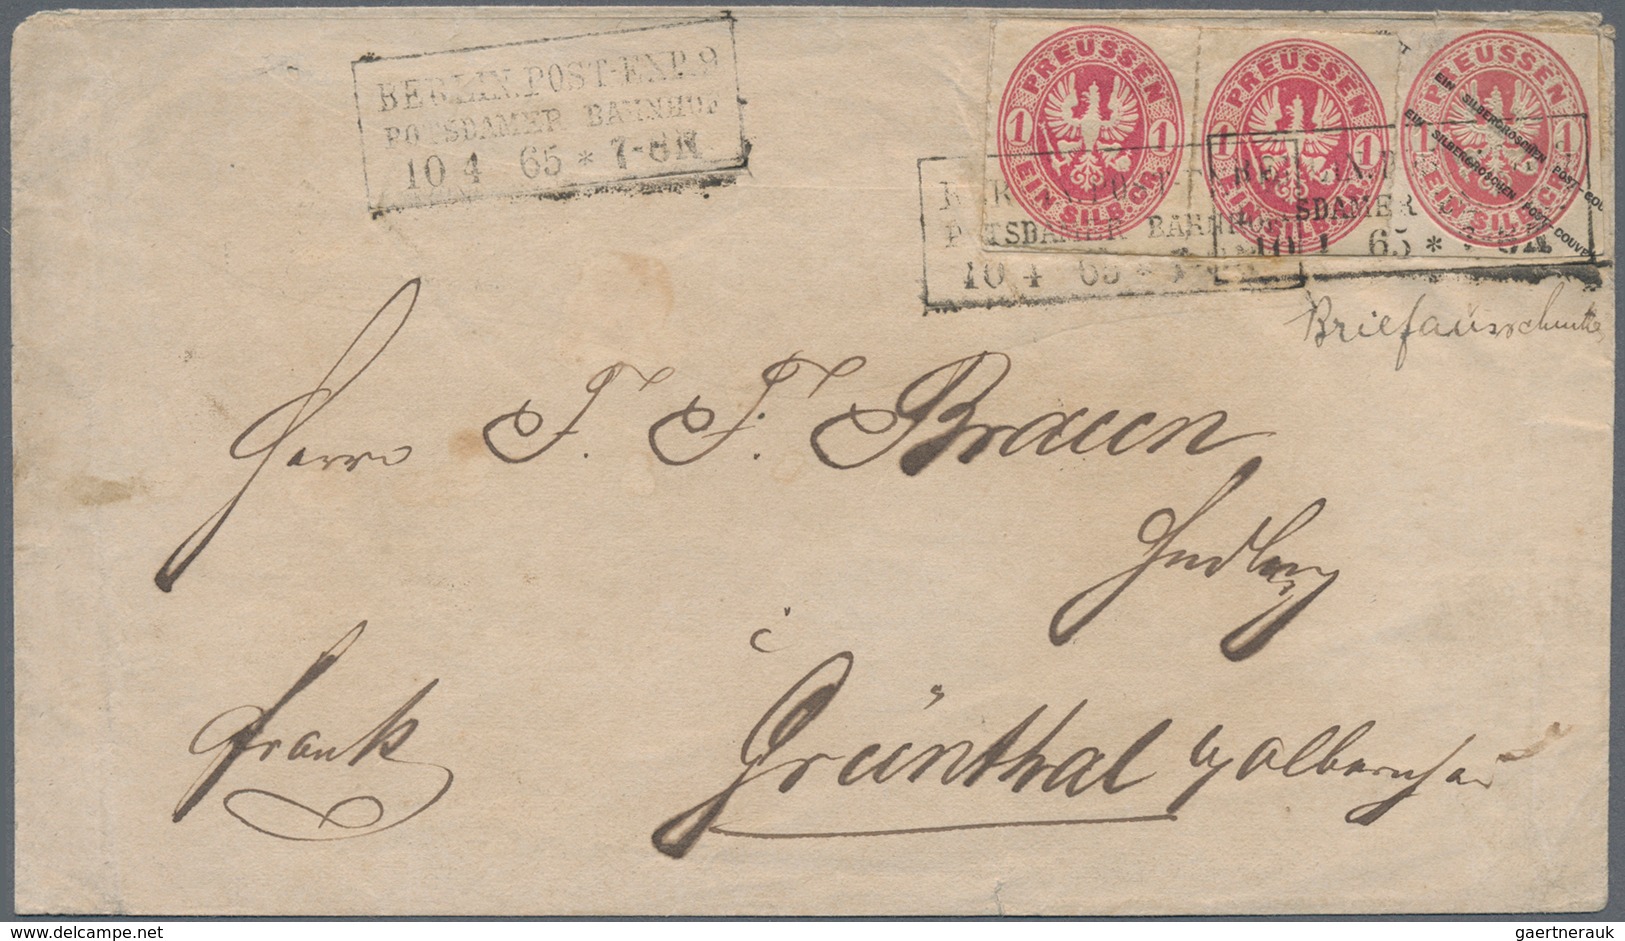 BERLIN.POST-EXP.9
POTSDAMER BAHNHOF
10 4 65 * 7-8N
PREUSSEN
1 1
EIN SILB.GR.
PREUSSEN
1 1
EIN SILB.GR.
PREUSSEN
1 1
EIN SILB.GR.
EIN SILBERGROSCHEN POST-COU
EIN SILBERGROSCHEN POST-COUVE
BERLIN.POST-
POTSDAMER BAHNHOF
10 4 65 *
BERLIN.P
SDAMER
10 4 65 *
Briefausschnitte
Herrn F. F. Braun
frank
Grünthal b/ Olbernhau
delcampe.net
gaertnerauk